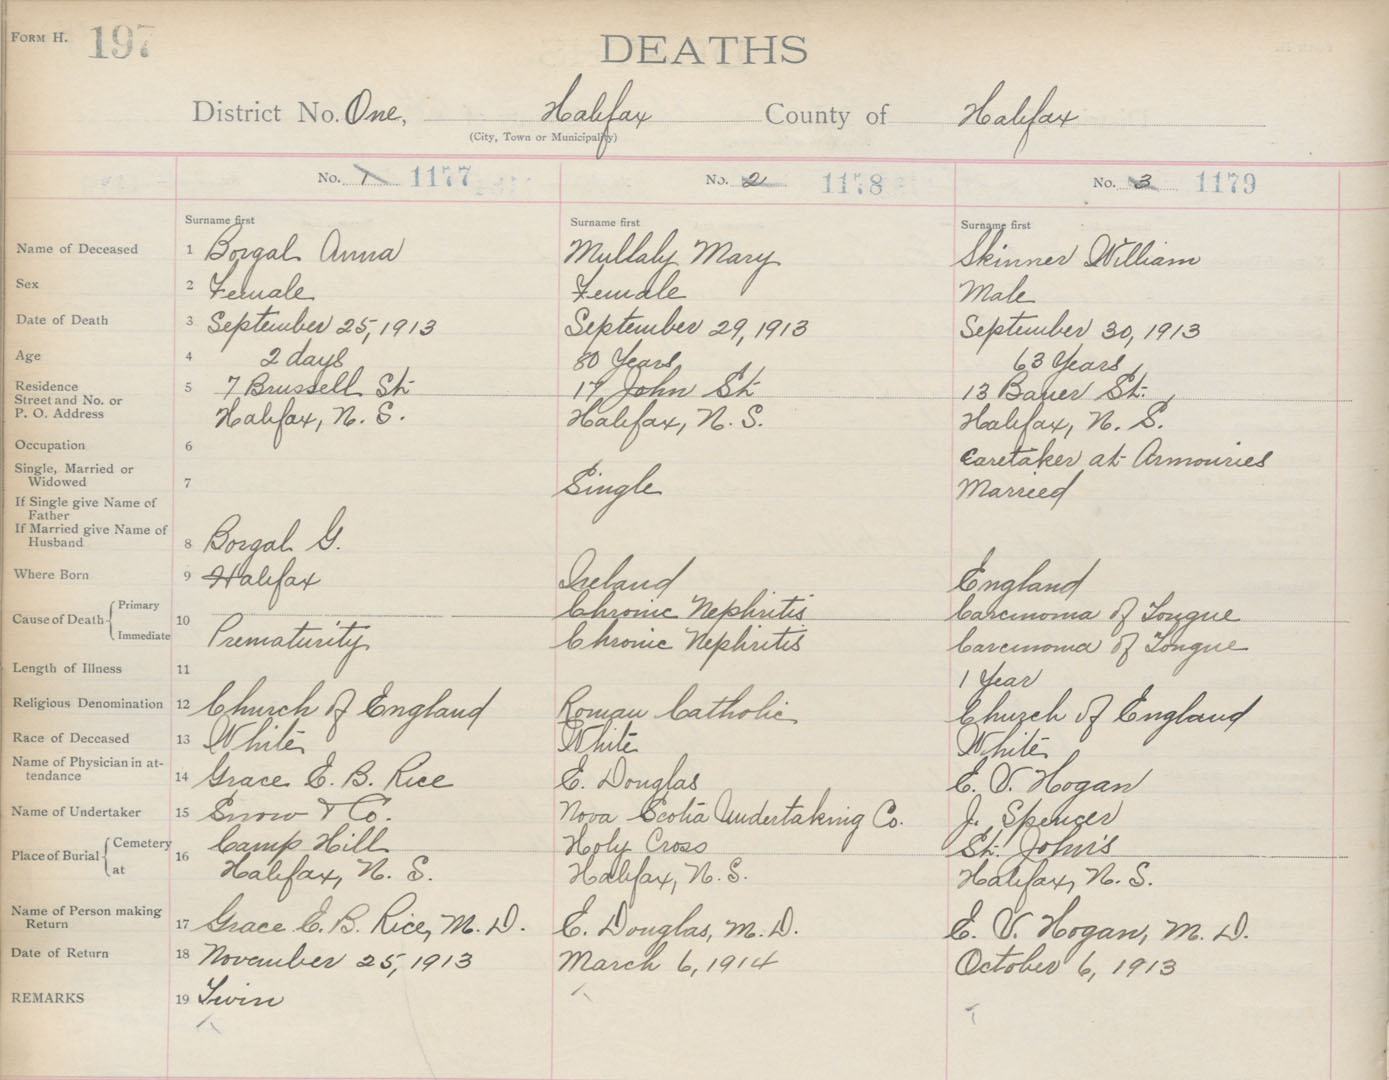 FORM H. 197
DEATHS
District No. One, Halifax County of Halifax
(City, Town or Municipality)
No. 1 1177 No. 2 1178 No. 3 1179
Surname first Surname first Surname first
Name of Deceased 1 Borgal Anna Mullaly Mary Skinner William
Sex 2 Female Female Male
Date of Death 3 September 25, 1913 September 29, 1913 September 30, 1913
Age 4 2 days 80 Years 63 Years
Residence 5 7 Brussell St. 17 John St. 13 Bauer St.
Street and No. or
P. O. Address Halifax, N. S. Halifax, N. S. Halifax, N. S.
Occupation 6 Caretaker at Armouries
Single, Married or
Widowed 7 Single Married
If Single give Name of
Father
If Married give Name of
Husband 8 Borgal G.
Where Born 9 Halifax Ireland England
Cause of Death Primary 10 Chronic Nephritis Carcinoma of Tongue
Immediate Prematurity Chronic Nephritis Carcinoma of Tongue
Length of Illness 11 1 Year
Religious Denomination 12 Church of England Roman Catholic Church of England
Race of Deceased 13 White White White
Name of Physician in at-
tendance 14 Grace E. B. Rice E. Douglas E. V. Hogan
Name of Undertaker 15 Snow & Co. Nova Scotia Undertaking Co. J. Spencer
Place of Burial Cemetery 16 Camp Hill Holy Cross St. John's
at Halifax, N. S. Halifax, N. S. Halifax, N. S.
Name of Person making
Return 17 Grace E. B. Rice, M. D. E. Douglas, M. D. E. V. Hogan, M. D.
Date of Return 18 November 25, 1913 March 6, 1914 October 6, 1913
REMARKS 19 Twin